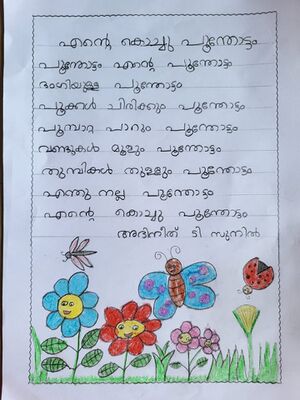 എന്റെ കൊച്ചു പൂന്തോട്ടം
പൂന്തോട്ടം എന്റെ പൂന്തോട്ടം
ഭംഗിയുള്ള പൂന്തോട്ടം
പൂക്കൾ ചിരിക്കും പൂന്തോട്ടം
പൂമ്പാറ്റ പാറും പൂന്തോട്ടം
വണ്ടുകൾ മൂളും പൂന്തോട്ടം
തുമ്പികൾ തുള്ളും പൂന്തോട്ടം
എന്തു നല്ല പൂന്തോട്ടം
എന്റെ കൊച്ചു പൂന്തോട്ടം
അഭിനീത് ടി സുനിൽ